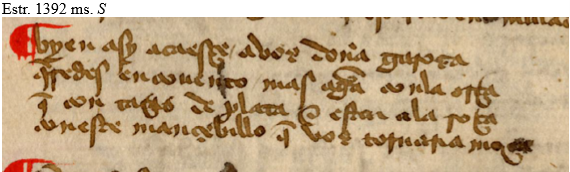 Estr. 1392 ms. S
byen asy acaesçe a vos doña garoça
q̃redes en convento mas agũa conla orça
q̃ con taças de plata E estar ala roça
con este mançebillo q̃ vos tornaria moça